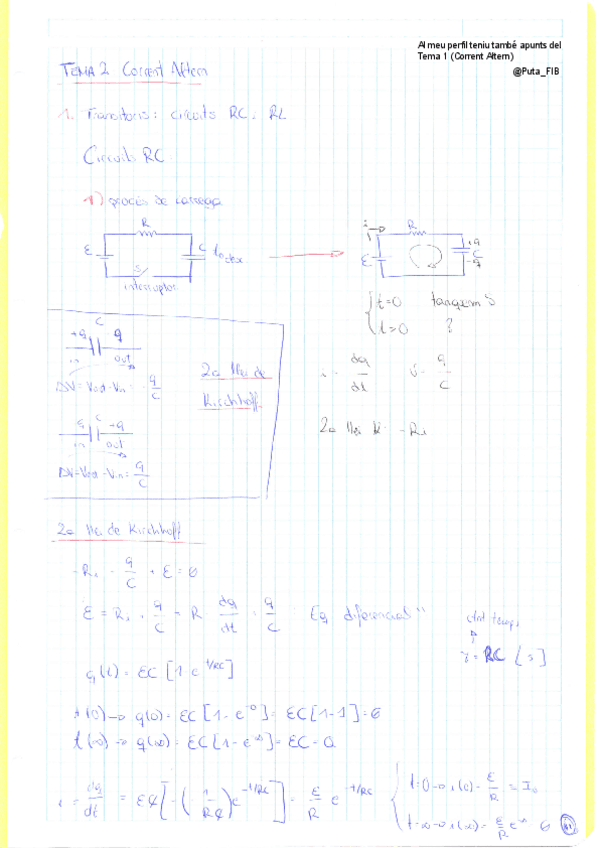 Al meu perfil teniu també apunts del
Tema 1 (Corrent Altern)
@Puta_FIB
TEMA 2 Corrent Altern
1. Transitoris: circuits RC i RL
Circuits RC
1) procés de carrega
R
E
C
S
interruptor
i
R
E
+q
C
-q
t=0 tanquem S
t=0 ?
+q C -q
in out
ΔV=Vout-Vin = -q/C
-q C +q
in out
ΔV=Vout-Vin = q/C
2a llei de
Kirchhoff
i = dq/dt v = q/C
2a llei K: -Ri
2a llei de Kirchhoff
-Ri - q/C + E = 0
E = Ri + q/C = R dq/dt + q/C Eq diferencial"
ctnt temps
τ = RC [s]
q(t) = EC [1 - e^-t/RC]
t(0) → q(0) = EC[1-e^-0] = EC[1-1] = 0
t(∞) → q(∞) = EC[1-e^-∞] = EC = Q
i = dq/dt = EC[-(-1/RC)e^-t/RC] = E/R e^-t/RC
t=0 → i(0) = E/R = I0
t=∞ → i(∞) = E/R e^-∞ = 0